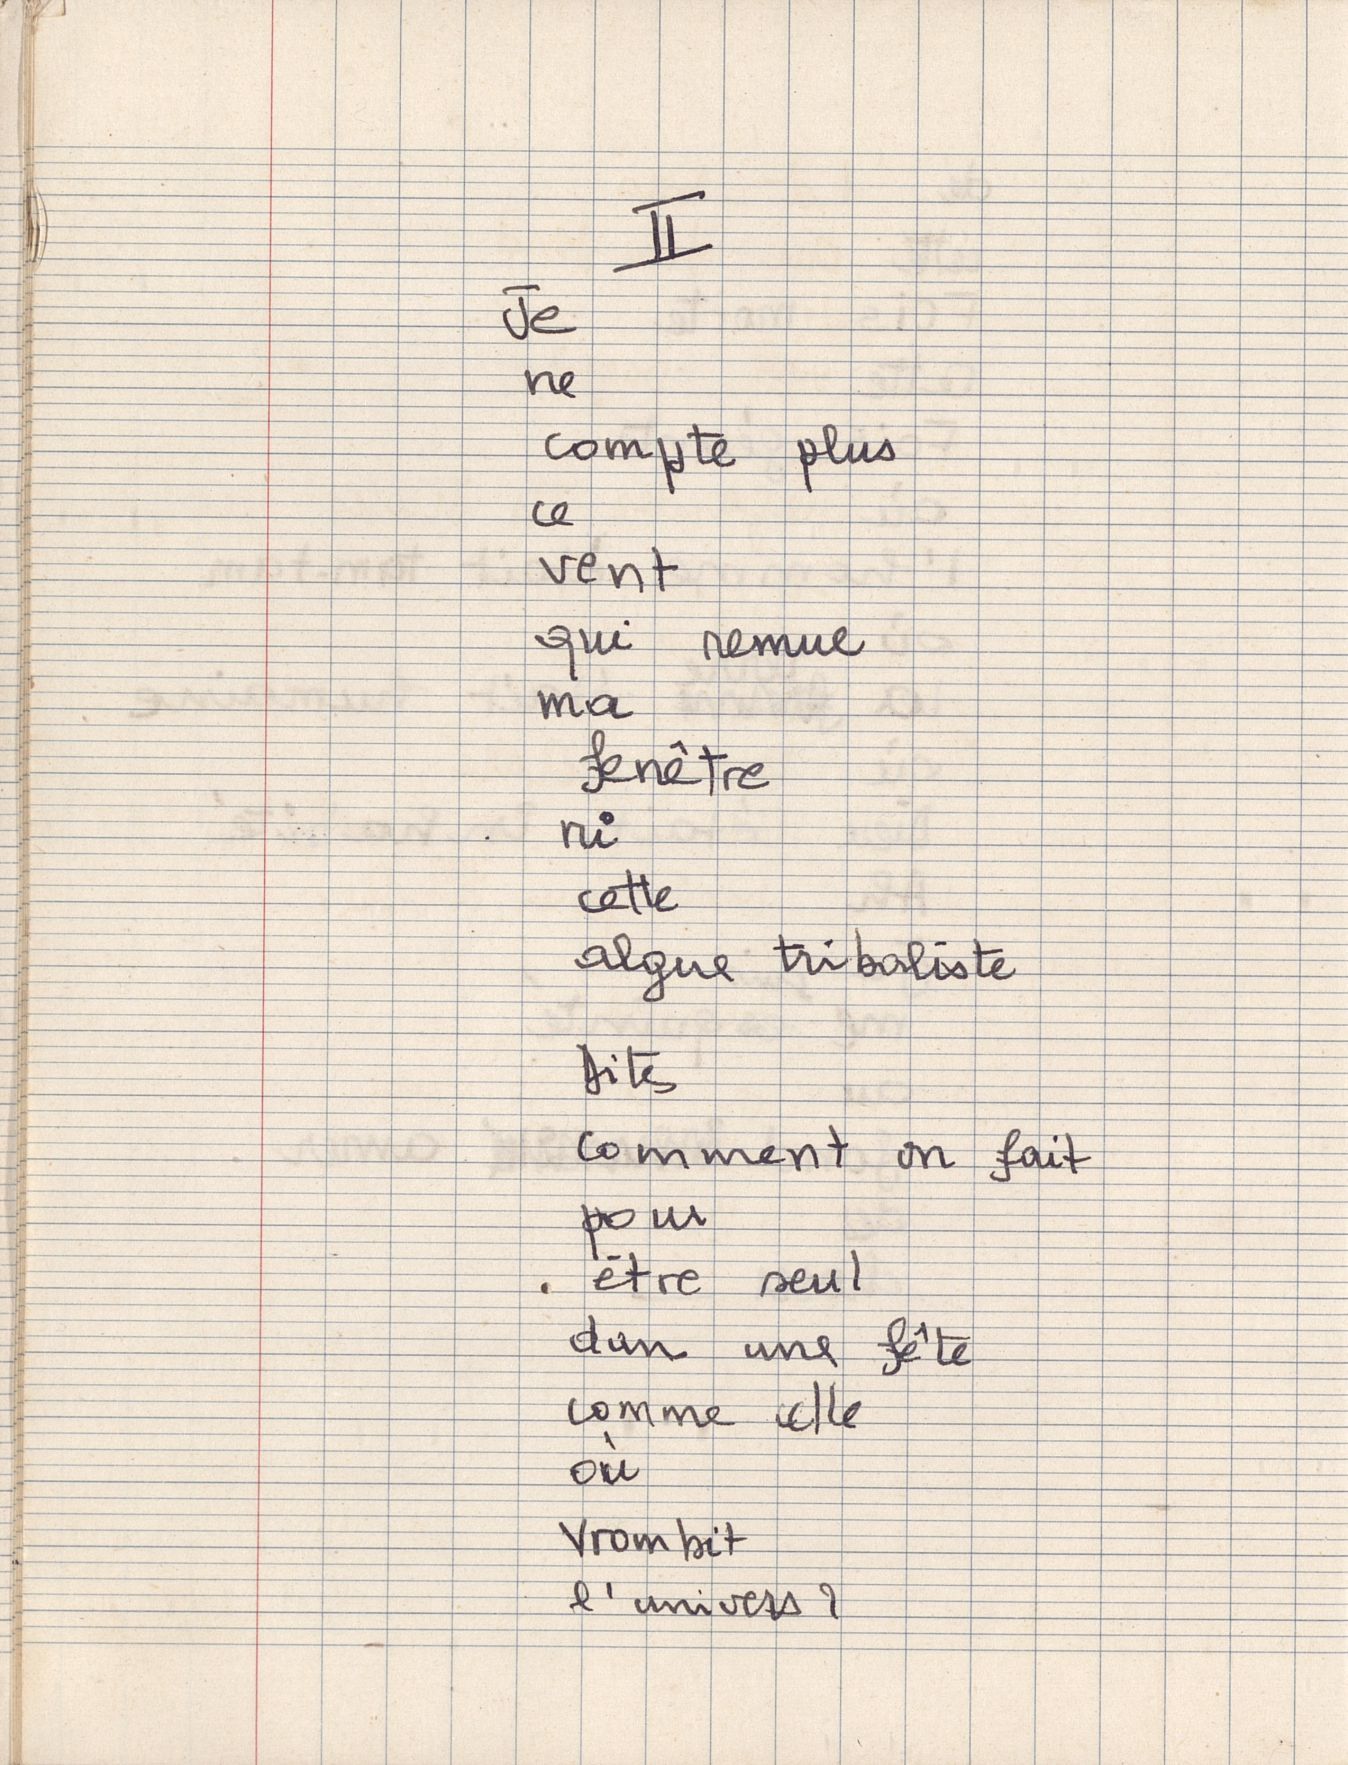 II
Je
ne
compte plus
ce
vent
qui remue
ma
fenêtre
ni
cette
algue tribaliste
Dites
comment on fait
pour
être seul
dans une fête
comme celle
où
Vrombit
l'univers ?